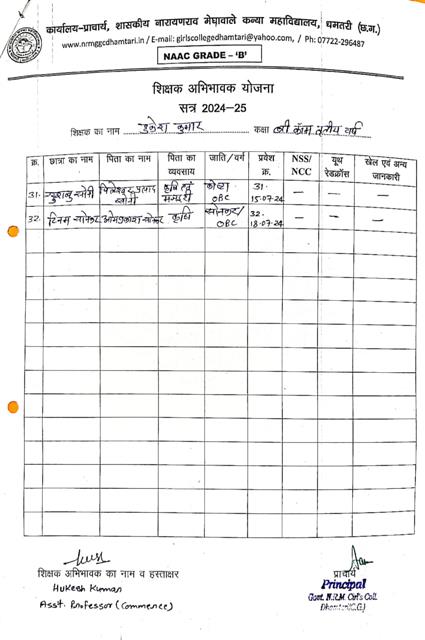 कार्यालय-प्राचार्य, शासकीय नारायणराव मेघावाले कन्या महाविद्यालय, धमतरी (छ.ग.)
www.nrmggcdhamtari.in / E-mail: girlscollegedhamtari@yahoo.com, / Ph: 07722-296487
NAAC GRADE - 'B'
शिक्षक अभिभावक योजना
सत्र 2024-25
शिक्षक का नाम हुकेश कुमार कक्षा बी कॉम तृतीय वर्ष
क्र. छात्रा का नाम पिता का नाम पिता का व्यवसाय जाति/वर्ग प्रवेश क्र. NSS/ NCC यूथ रेडक्रॉस खेल एवं अन्य जानकारी
31. कृषि OBC 31. 15-07-24 — — —
32. कृषि OBC 32. 18-07-24 — — —
शिक्षक अभिभावक का नाम व हस्ताक्षर
Hukesh Kumar
Asst. Professor (Commerce)
प्राचार्य
Principal
Govt. N.R.M. Girl's Coll.
Dhamtari (C.G.)